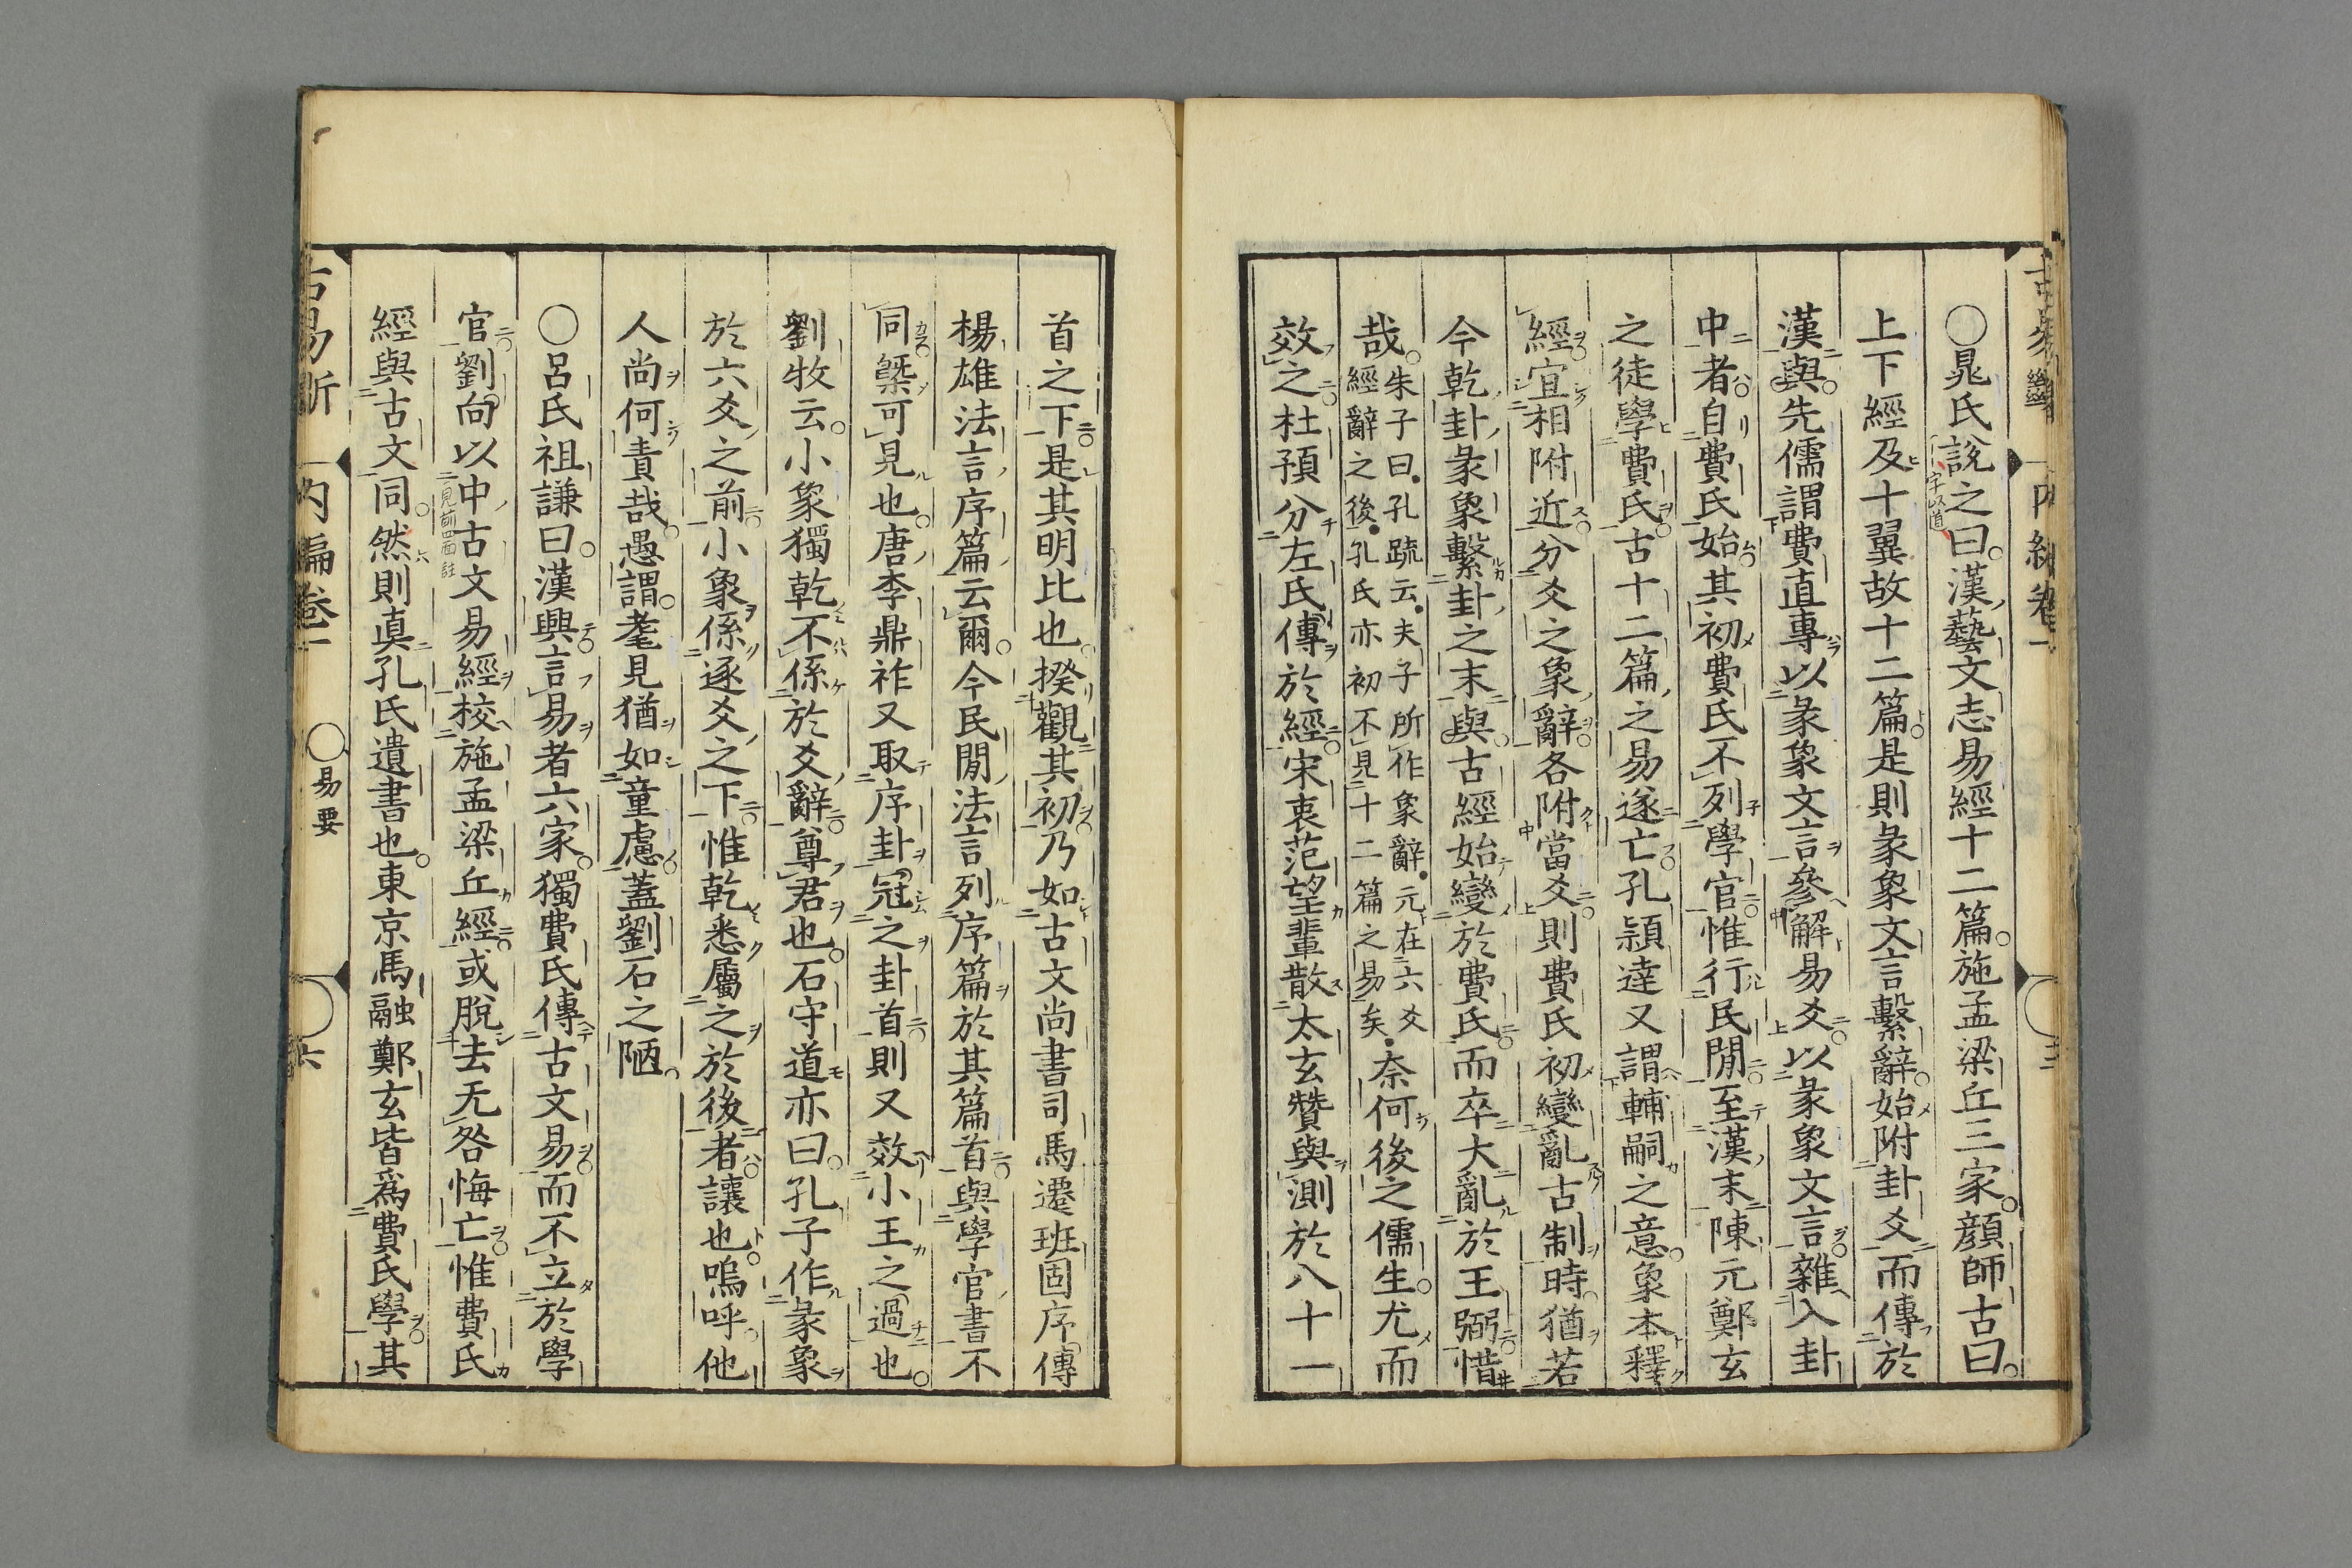 〇晁氏說之曰漢藝文志易經十二篇施孟梁丘三家顏師古曰
字以道
上下經及十翼故十二篇是則彖象文言繫辭始附卦爻而傳於
漢與先儒謂費直專以彖象文言參解易爻以彖象文言雜入卦
中者自費氏始其初費氏不列學官惟行民閒至漢末陳元鄭玄
之徒學費氏古十二篇之易遂亡孔穎達又謂輔嗣之意象本釋
經宜相附近分爻之象辭各附當爻則費氏初變亂古制時猶若
今乾卦彖象繫卦之末與古經始變於費氏而卒大亂於王弼惜
哉朱子曰孔疏云夫子所作象辭元在六爻
經辭之後孔氏亦初不見十二篇之易矣奈何後之儒生尤而
效之杜預分左氏傳於經宋衷范望輩散太玄贊與測於八十一
首之下是其明比也揆觀其初乃如古文尚書司馬遷班固序傳
楊雄法言序篇云爾今民閒法言列序篇於其篇首與學官書不
同槩可見也唐李鼎祚又取序卦冠之卦首則又效小王之過也
劉牧云小象獨乾不係於爻辭尊君也石守道亦曰孔子作彖象
於六爻之前小象係逐爻之下惟乾悉屬之於後者讓也嗚呼他
人尚何責哉愚謂耄見猶如童慮蓋劉石之陋
〇呂氏祖謙曰漢興言易者六家獨費氏傳古文易而不立於學
官劉向以中古文易經校施孟梁丘經或脫去无咎悔亡惟費氏
見前四面註
經與古文同然則真孔氏遺書也東京馬融鄭玄皆爲費氏學其
古易斷
內編卷一
〇易要
六